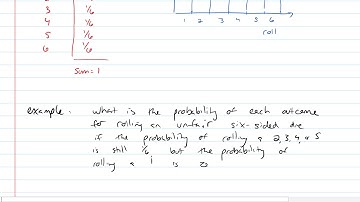 3 1/6
4 1/6
5 1/6
6 1/6
Sum = 1
1 2 3 4 5 6
roll
example: what is the probability of each outcome
for rolling an unfair six-sided die
if the probability of rolling a 2, 3, 4, or 5
is still 1/6 but the probability of
rolling a 1 is